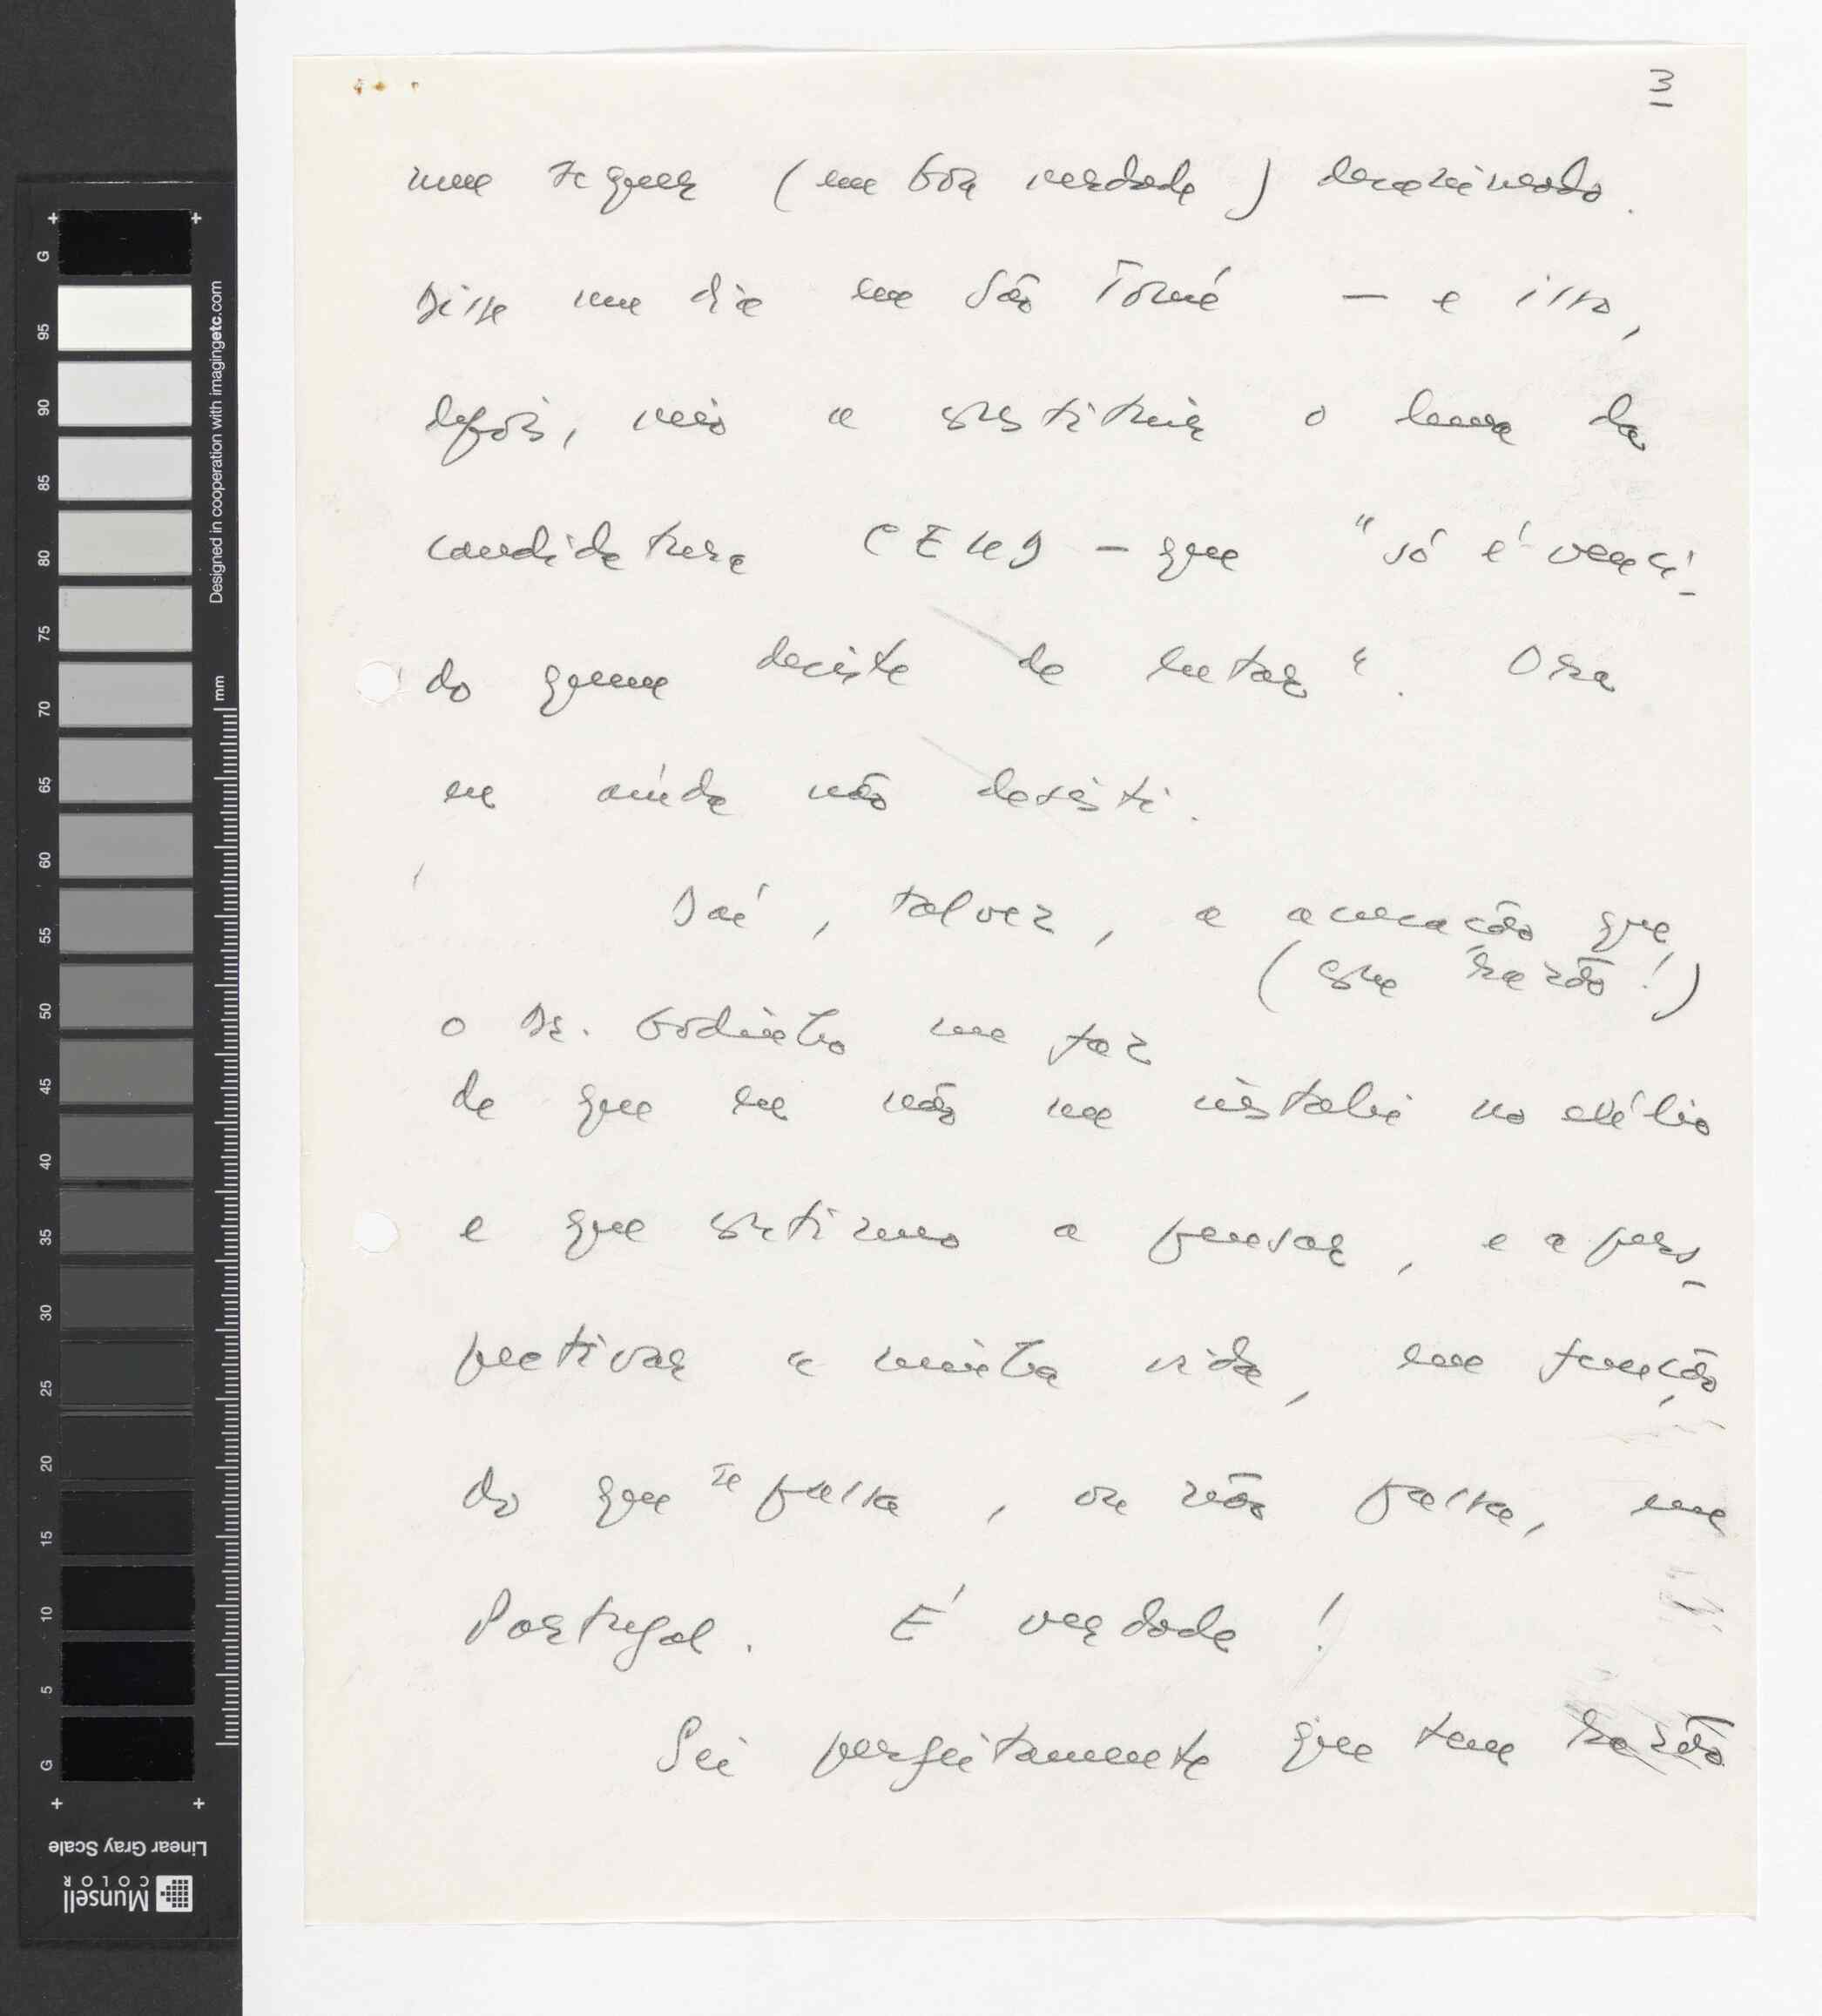 3
nem sequer (em boa verdade) desanimado.
Disse um dia em São Tomé — e isso,
depois, veio a constituir o lema da
candidatura CEUD — que "só é venci-
do quem desiste de lutar". Ora
eu ainda não desisti.
Daí, talvez, a acusação que,
(com razão!)
o Dr. Godinho me faz
de que eu não me instalei no exílio
e que continuo a pensar, e a pers-
pectivar a minha vida, em função
do que se passa, ou não passa, em
Portugal. É verdade!
Sei perfeitamente que tem razão
G
95
90
85
80
75
70
65
60
55
50
45
40
35
30
25
20
15
10
5
G
mm
Designed in cooperation with imagingetc.com
Linear Gray Scale
Munsell
COLOR